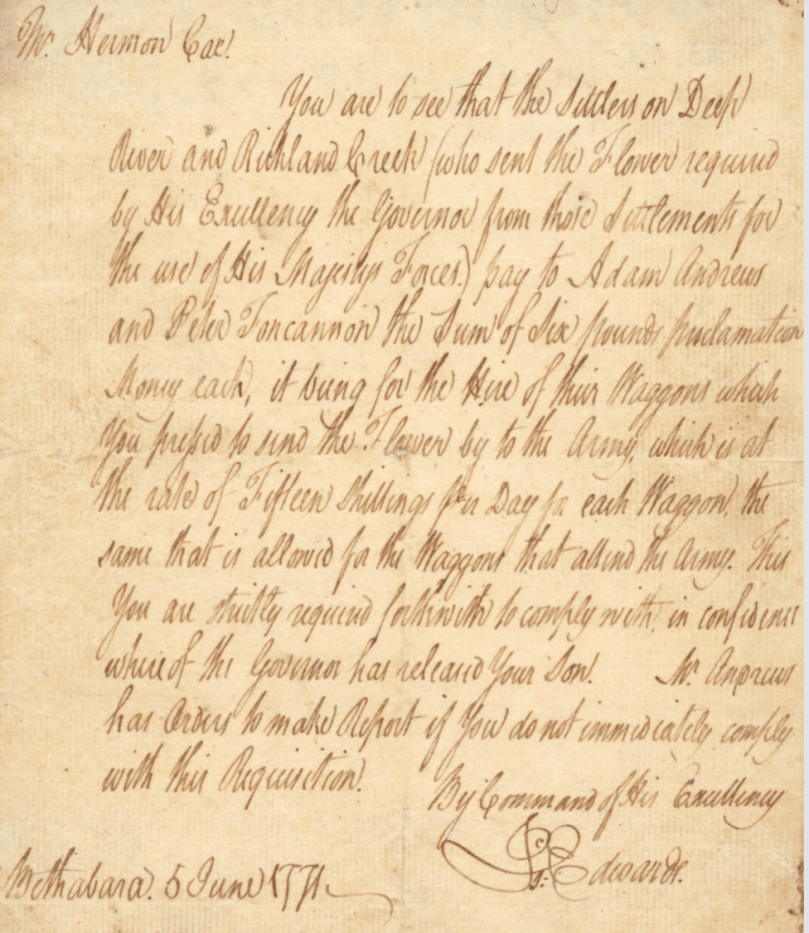 Mr. Hermon Cox.
You are to see that the Settlers on Deep
River and Richland Creek (who sent the Flower required
by His Excellency the Governor from those Settlements for
the use of His Majestys Forces.) pay to Adam Andrews
and Peter Foncannon the Sum of Six pounds proclamation
Money each, it being for the Hire of their Waggons which
You press'd to send the Flower by to the Army, which is at
the rate of Fifteen Shillings per Day for each Waggon, the
same that is allowed for the Waggons that attend the Army. This
You are strictly required forthwith to comply with, in confidence
whereof the Governor has released Your Son. Mr. Andrews
has Orders to make Report if You do not immediately comply
with this Requisition.
By Command of His Excellency
Edwards.
Bethabara. 5 June 1771.